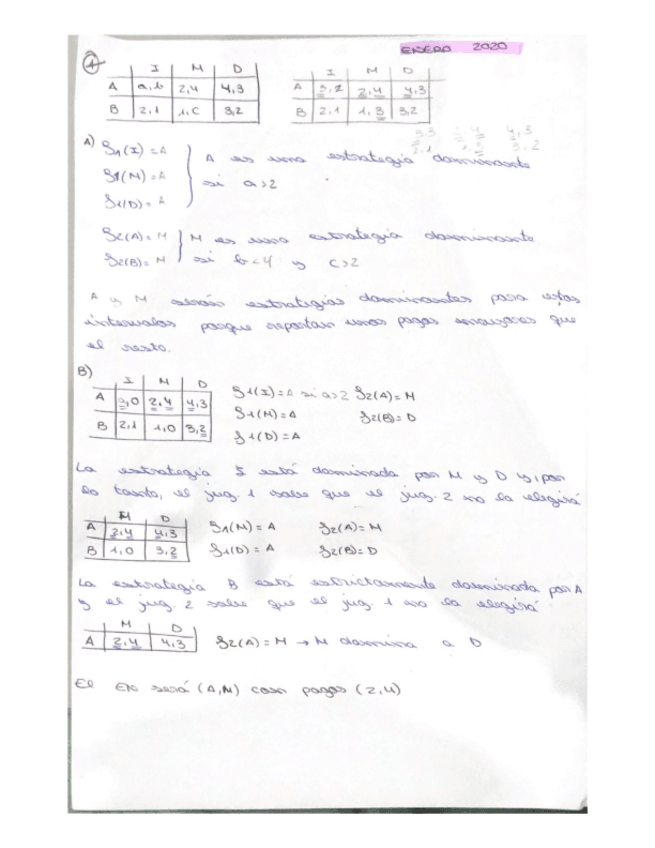 ENERO 2020
1
I M D
A a,b 2,4 4,3
B 2,1 1,c 3,2
I M D
A 3,2 2,4 4,3
B 2,1 1,3 3,2
3,3 2,4 4,3
2,1 1,3 3,2
A) S1(I) = A
S1(M) = A
S1(D) = A
A es una estrategia dominante
si a>2
S2(A) = M
S2(B) = M
M es una estrategia dominante
si b<4 y c>2
A y M serán estrategias dominantes para estos
intervalos porque reportan unos pagos mayores que
el resto.
B)
I M D
A a,0 2,4 4,3
B 2,1 1,0 3,2
S1(I) = A si a>2 S2(A) = M
S1(M) = A S2(B) = D
S1(D) = A
La estrategia I está dominada por M y D y, por
lo tanto, el jug. 1 sabe que el jug. 2 no la elegirá
M D
A 2,4 4,3
B 1,0 3,2
S1(M) = A S2(A) = M
S1(D) = A S2(B) = D
La estrategia B está estrictamente dominada por A
y el jug. 2 sabe que el jug. 1 no la elegirá
M D
A 2,4 4,3
S2(A) = M → M domina a D
El EN será (A,M) con pagos (2,4)